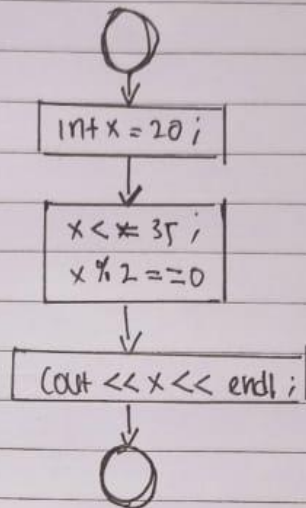 int x = 20 ;
x <= 35 ;
x % 2 == 0
Cout << x << endl ;